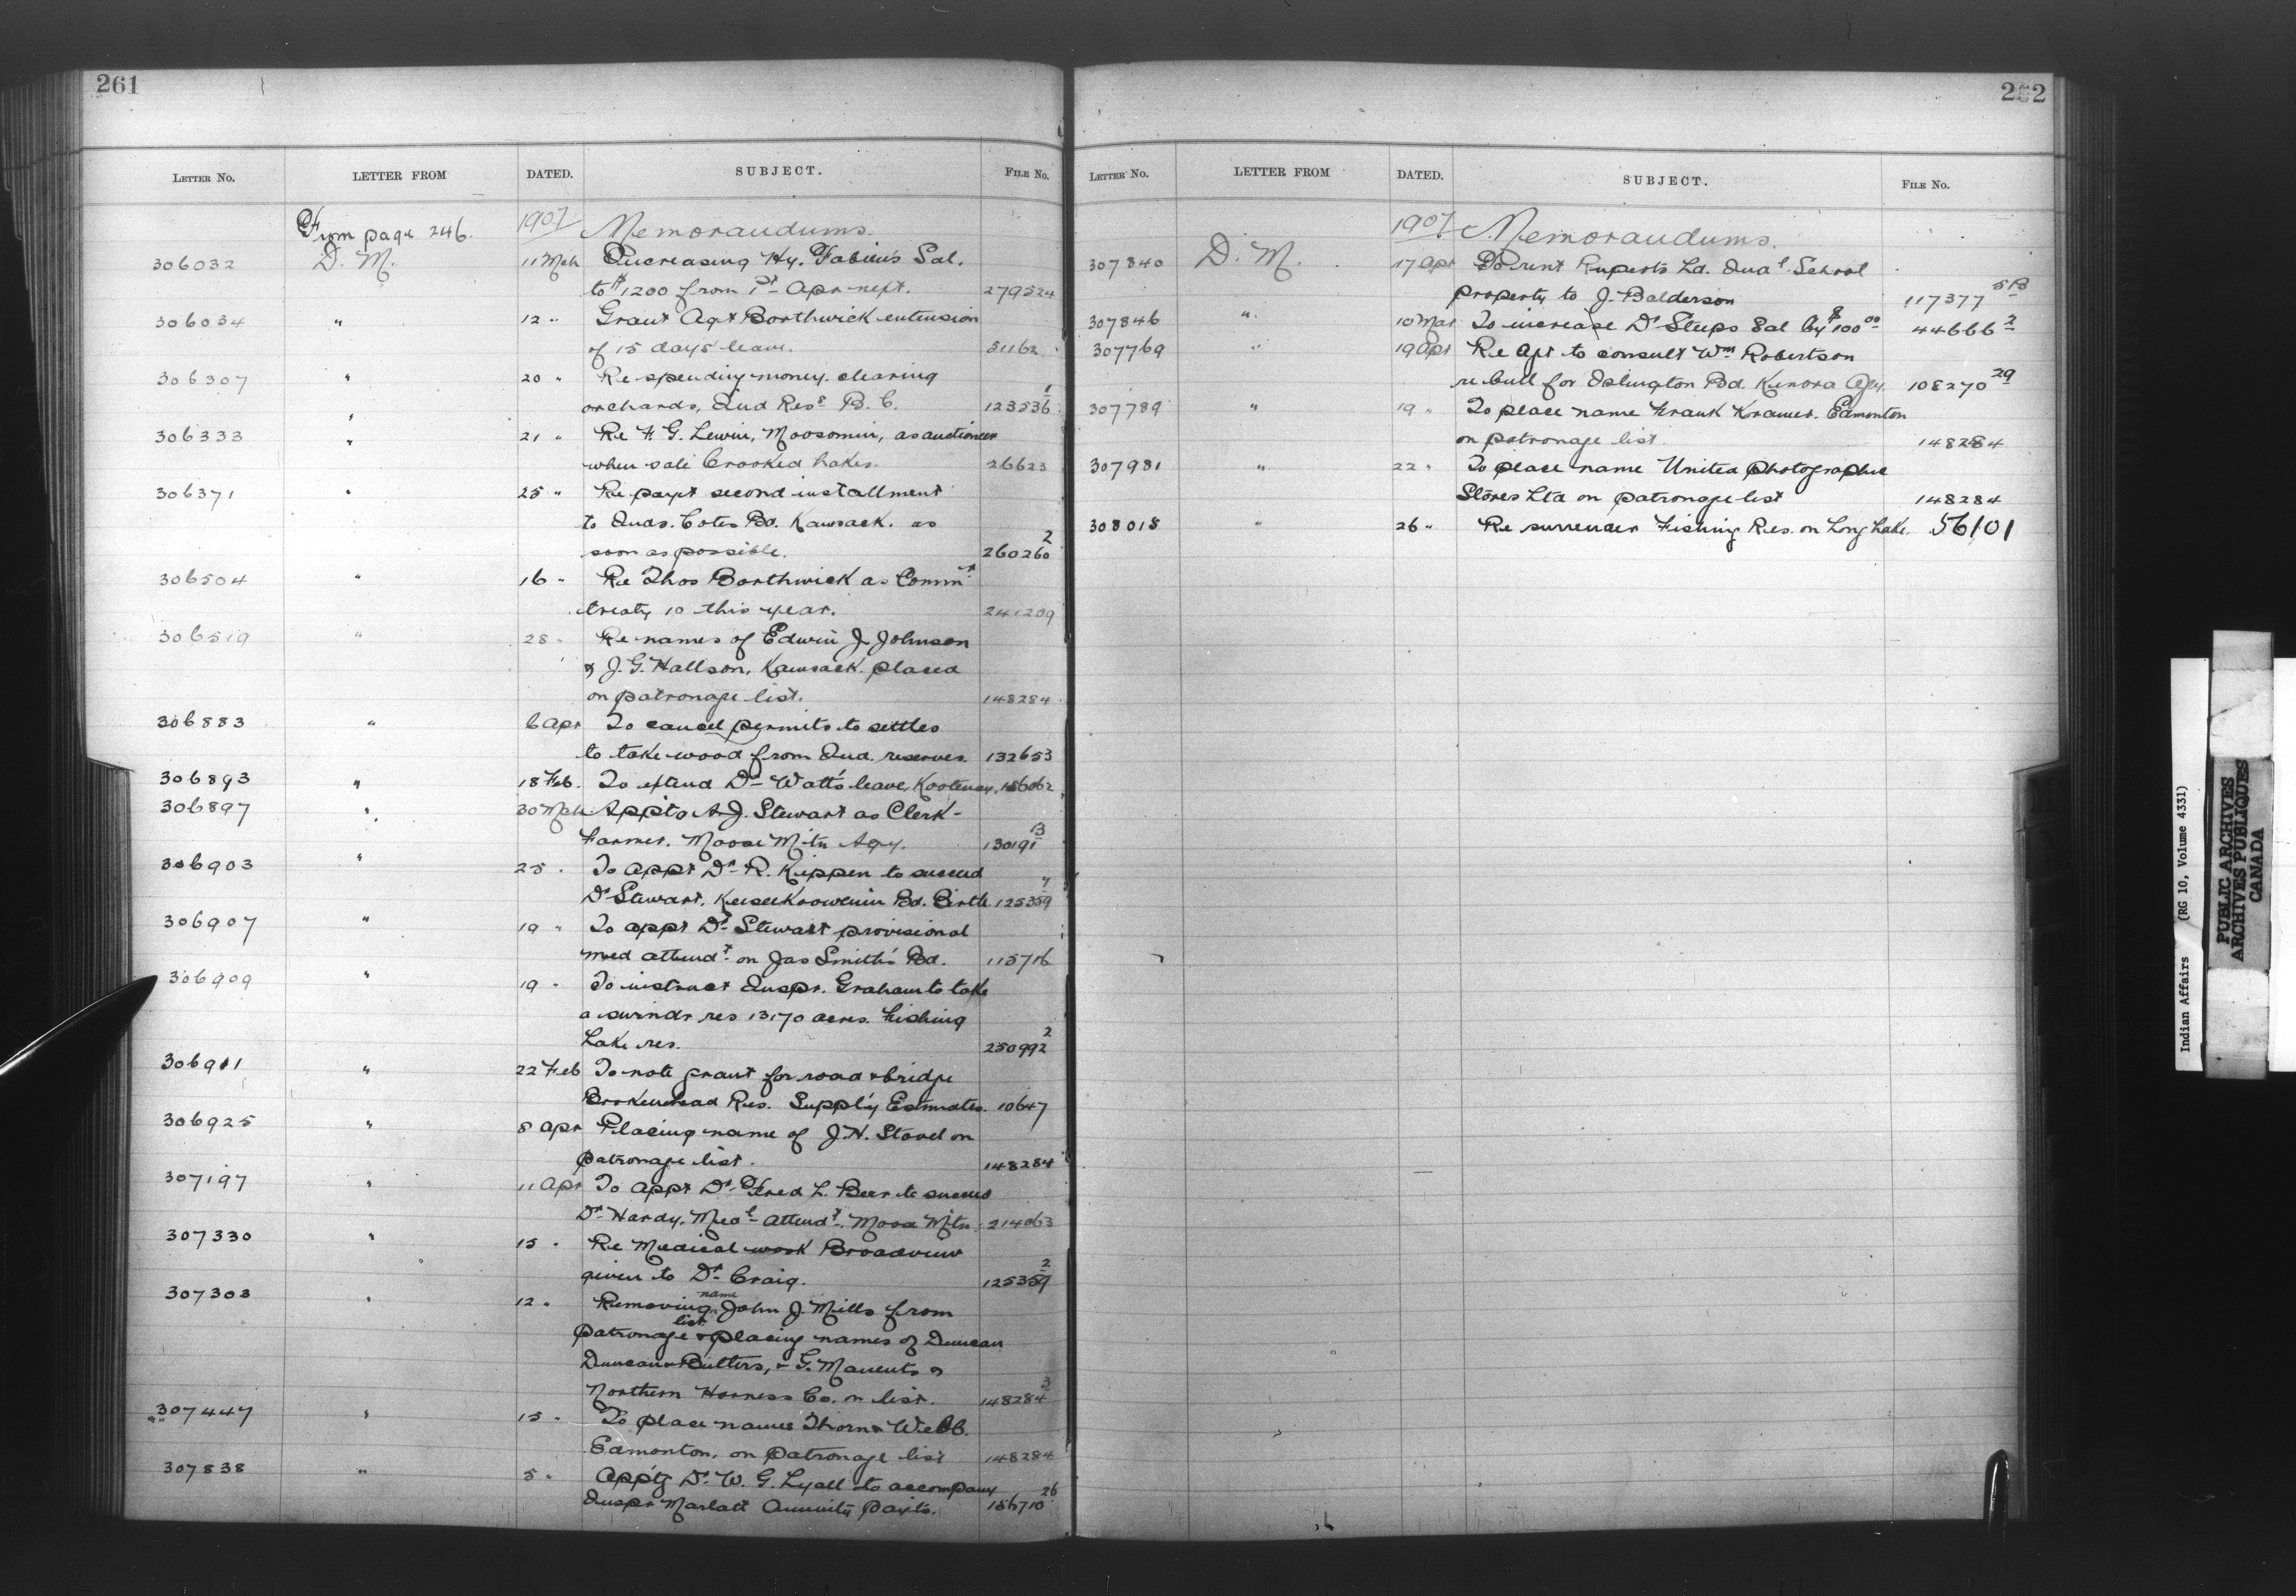 261
LETTER NO. LETTER FROM DATED. SUBJECT. FILE NO.
From page 246. 1907 Memorandums.
306032 D. M. 11 Mch Increasing Hy. Fabien's Sal.
to $1200 from 1st Apr next. 279524
306034 " 12 " Grant Agt Borthwick extension
of 15 days leave. 51162
306307 " 20 " Re spending money clearing
orchards, Ind Ress B. C. 123536 1
306333 " 21 " Re F. G. Lewin, Moosomin, as auctioneer
when sale Crooked Lakes. 26623
306371 " 25 " Re payt second installment
to Inds. Cotes Bd. Kamsack. as
soon as possible. 260260 2
306504 " 16 " Re Thos Borthwick as Commr
treaty 10 this year. 241209
306519 " 28 " Re names of Edwin J. Johnson
& J. G. Hallson, Kamsack. placed
on patronage list. 148284
306883 " 6 Apr To cancel permits to settles
to take wood from Ind. reserves. 132653
306893 " 18 Feb. To extend Dr Watt's leave, Kootenay. 156062
306897 " 30 Mch Appt'g A. J. Stewart as Clerk-
Farmer. Moose Mtn Agy. 130191 13
306903 " 25 " To appt Dr R. Kippen to succeed
Dr Stewart, Keeseekoowenin Bd. Birtle 125359 7
306907 " 19 " To appt Dr Stewart provisional
med attendt on Jas Smith's Bd. 115716
306909 " 19 " To instruct Inspr. Graham to take
a surndr res 13170 acres. Fishing
Lake res. 250992 2
306911 " 22 Feb To note grant for road & bridge
Brokenhead Res. Supply Estimates. 10647
306925 " 8 Apr Placing name of J. H. Stovel on
patronage list. 148284
307197 " 11 Apr To appt Dr Fred L. Beer to succeed
Dr Hardy, Medl attendt, Moose Mtn. 214063
307330 " 15 " Re Medical work Broadview
given to Dr Craig. 125359 2
307303 " 12 " Removing name John J. Mills from
patronage list & placing names of Duncan
Duncan & Butters, & G. &
Northern Harness Co. on list. 148284 3
307447 " 15 " To place names Thorn & Webb.
Edmonton, on patronage list 148284
307838 " 5 " Appt'g Dr W. G. Lyall to accompany
Inspr Marlatt Annuity Payts. 156710 26
262
LETTER NO. LETTER FROM DATED. SUBJECT. FILE NO.
1907 Memorandums.
307840 D. M. 17 Apr To rent Ruperts Ld. Indal School
property to J. Balderson 117377 5B
307846 " 10 Mar To increase Dr Steeps Sal by $100 00 44666 2
307769 " 19 Apr Re Agt to consult Wm Robertson
re bull for Islington Bd. Kenora Agy. 108270 29
307789 " 19 " To place name Frank Kramer. Edmonton
on patronage list. 148284
307981 " 22 " To place name United photographic
Stores Ltd on patronage list 148284
308015 " 26 " Re surrender Fishing Res. on Long Lake. 56101
Indian Affairs (RG 10, Volume 4331)
PUBLIC ARCHIVES
ARCHIVES PUBLIQUES
CANADA